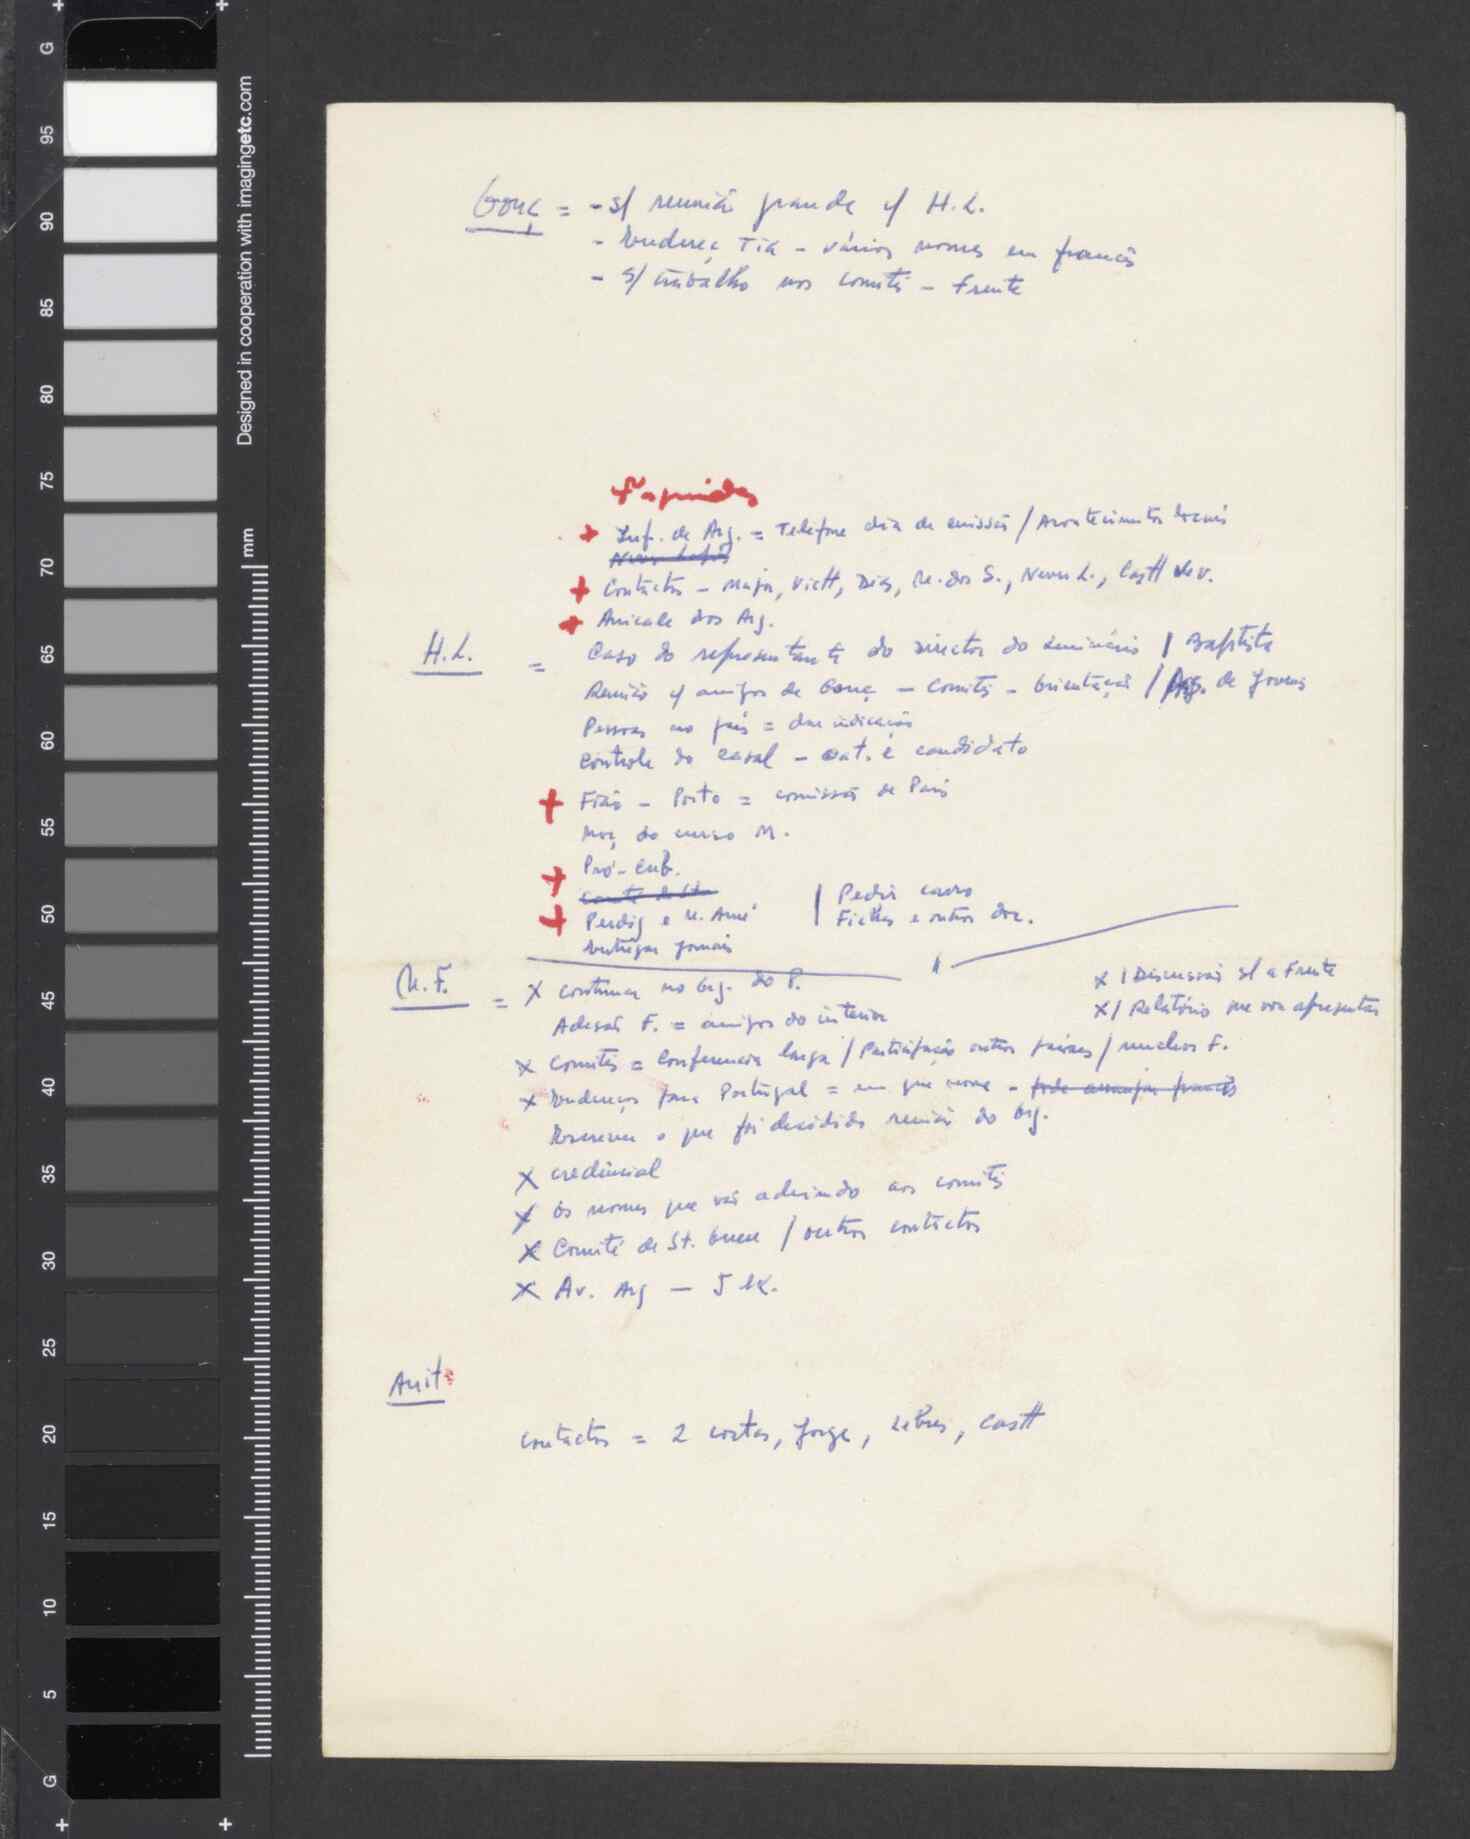 Gonç = - s/ reunião grande c/ H.L.
- Endereç Tia - vários nomes em francês
- s/ trabalho nos comités - Frente
+ Inf. de Arg. = Telefone dia de emissão / Acontecimentos locais
+ Contactos - Major, Vict, Dias, M. dos S., Neves L., Castt
+ Amicale dos Arg.
H.L. = Caso do representante do director do seminário / Baptista
Reunião c/ amigos de Gonç - Comités - Orientação / de Jovens
Pessoas no país = dar indicação
Controle do casal - candidato
+ Fião - Porto = comissão de País
Moç do curso M.
+ Pró-Cub.
+ Perdig e M. Amé | Pedir carro
Entregar jornais | Fichas e outros doc.
M.F. = x continua no Org. do P. x | Discussão s/ a Frente
Adesão F. = amigos do interior x | Relatório que vou apresentar
x Comités = Conferencia larga / Participação outros países / nucleos F.
x Endereços para Portugal = em que nome - pode arranjar francês
Descrever o que foi decidido reunião do Org.
x credencial
x Os nomes que vão aderindo aos comités
x Comité de St. Ouen / outros contactos
x Av. Arg - 5 k.
Anit
contactos = 2 cartas, Jorge, Castt
Designed in cooperation with imagingetc.com
mm
G
95
90
85
80
75
70
65
60
55
50
45
40
35
30
25
20
15
10
5
G